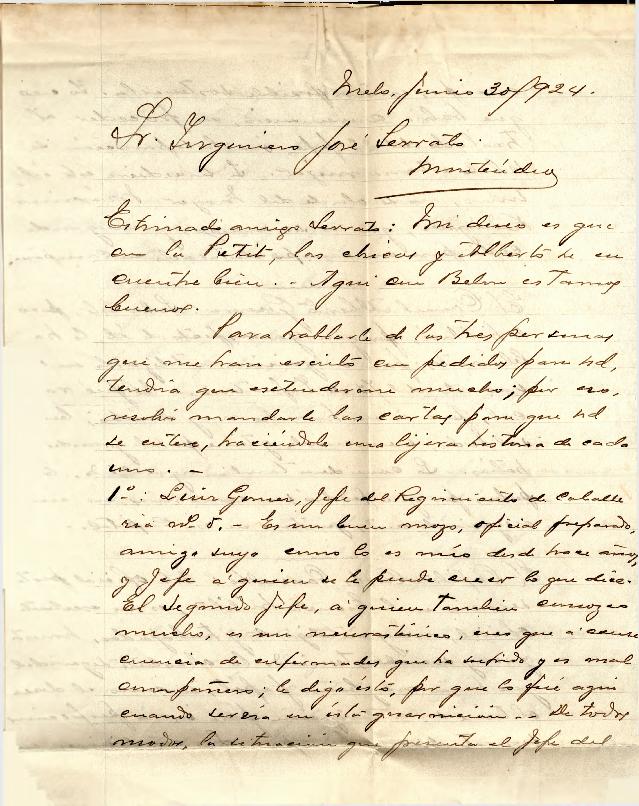 Melo, Junio 30/924.
Sr. Ingeniero José Serrato.
Montevideo
Estimado amigo Serrato: Mi deseo es que
con la Petit, las chicas y Alberto se en
cuentre bien. - Aquí con Belen estamos
buenos.
Para hablarle de las tres personas
que me han escrito con pedidos para Ud,
tendria que estenderme mucho; por eso,
resolví mandarle las cartas para que Ud
se entere, haciéndole una lijera historia de cada
uno. -
1º: Gomez, Jefe del Regimiento de caballe
ria Nº 5. - Es un buen mozo, oficial preparado,
amigo suyo como lo es mio desde hace años,
y Jefe á quien se le puede creer lo que dice.
El segundo Jefe, á quien tambien conozco
mucho, es un neurasténico, creo que á conse
cuencia de enfermedades que ha sufrido y es mal
compañero; le digo ésto, por que lo fué aqui
cuando servía en ésta guarnición. - De todos
modos, la situación que presenta el Jefe del